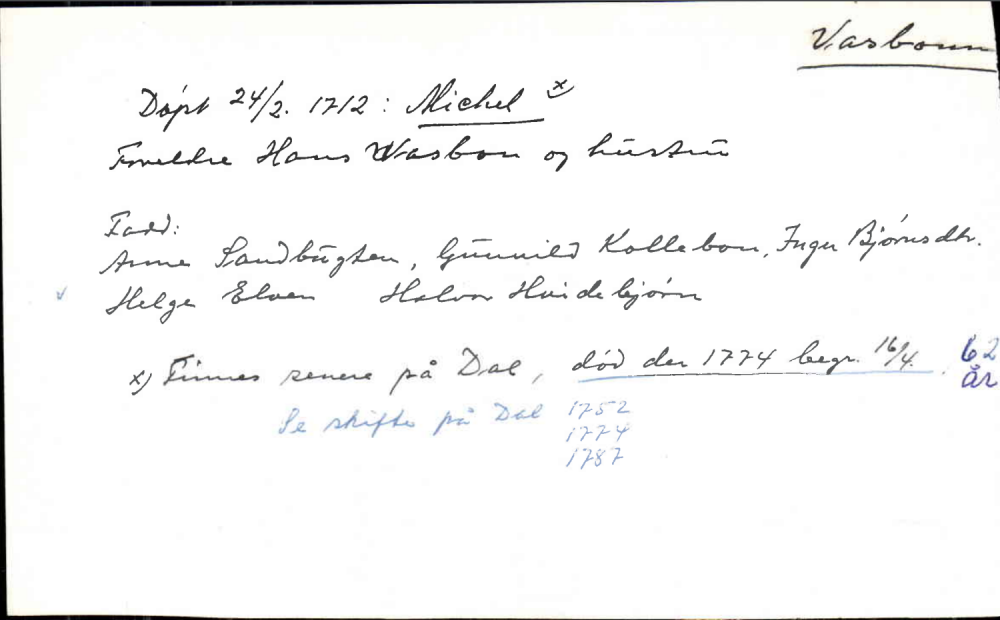 Vasbonn
Døpt 24/2. 1712: Michel x)
Foreldre Hans Wasbon og hustru
Fadd:
Anne Sandbugten, Gunnild Kollebon, Inger Bjørnsdtr.
Helge Elven Halvor Hvidebjørn
x) Finnes senere på Dal, død der 1774 begr. 16/4. 62 år
Se skifte på Dal 1752
1774
1787